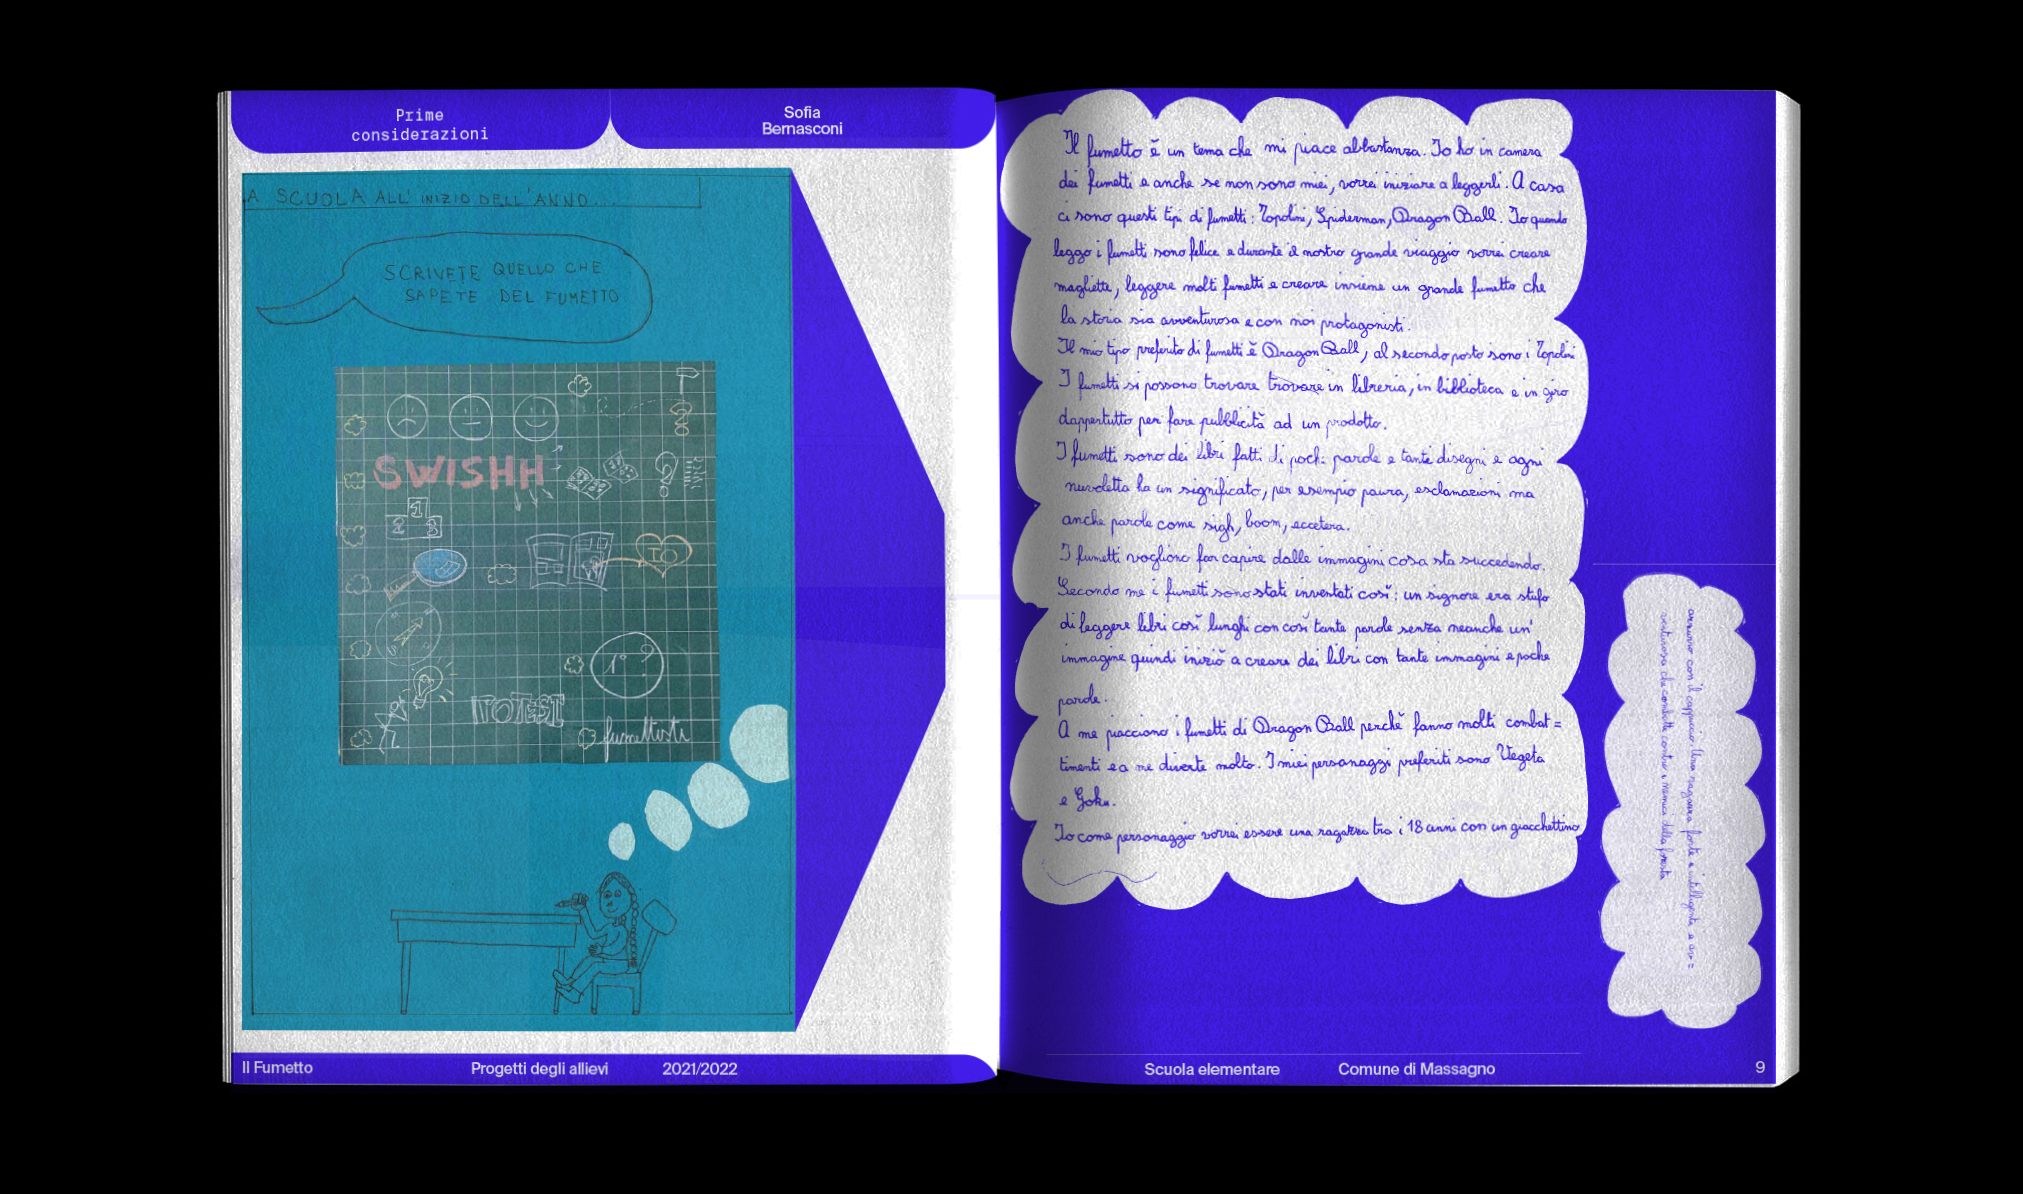 Prime
considerazioni
Sofia
Bernasconi
A SCUOLA ALL'INIZIO DELL'ANNO...
SCRIVETE QUELLO CHE
SAPETE DEL FUMETTO
SWISHH
1
2 3
IO
1° ?
TOTEST
fumettisti
Il Fumetto
Progetti degli allievi
2021/2022
Il fumetto è un tema che mi piace abbastanza. Io ho in camera
dei fumetti e anche se non sono miei, vorrei iniziare a leggerli. A casa
ci sono questi tipi di fumetti: Topolini, Spiderman, Dragon Ball. Io quando
leggo i fumetti sono felice e durante il nostro grande viaggio vorrei creare
magliette, leggere molti fumetti e creare insieme un grande fumetto che
la storia sia avventurosa e con noi protagonisti.
Il mio tipo preferito di fumetti è Dragon Ball, al secondo posto sono i Topolini
I fumetti si possono trovare trovare in libreria, in biblioteca e in giro
dappertutto per fare pubblicità ad un prodotto.
I fumetti sono dei libri fatti di pochi parole e tante disegni e ogni
nuvoletta ha un significato, per esempio paura, esclamazioni ma
anche parole come sigh, boom, eccetera.
I fumetti vogliono far capire dalle immagini cosa sta succedendo.
Secondo me i fumetti sono stati inventati così: un signore era stufo
di leggere libri così lunghi con così tante parole senza neanche un'
immagine quindi iniziò a creare dei libri con tante immagini e poche
parole.
A me piacciono i fumetti di Dragon Ball perchè fanno molti combat=
timenti e a me diverte molto. I miei personaggi preferiti sono Vegeta
e Goku.
Io come personaggio vorrei essere una ragazza tra i 18 anni con un giacchettino
azzurro con il cappuccio. Una ragazza forte e intelligente e av=
venturosa che combatte contro i nemici della foresta
Scuola elementare
Comune di Massagno
9